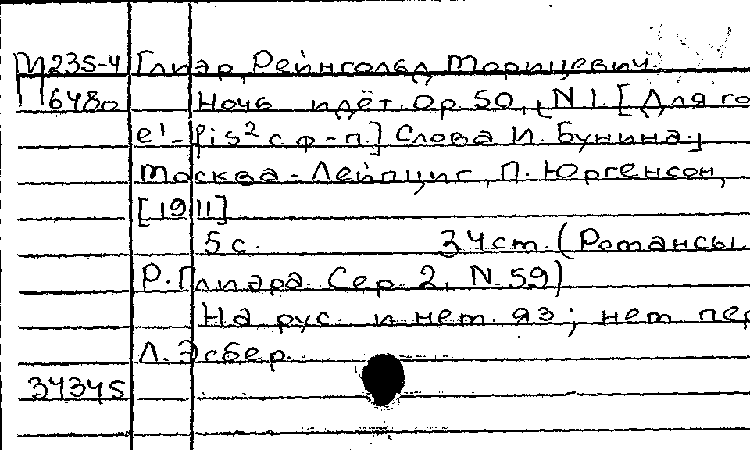 М235-4 Глиэр, Рейнгольд Морицевич.
П648о Ночь идёт. Ор. 50, N 1. [Для го
e¹-fis² с ф-п.] Слова И. Бунина.
Москва - Лейпциг, П. Юргенсон,
[1911]
5 с. 34 см. (Романсы
Р. Глиэра. Сер. 2, N 59)
На рус. и нем. яз; нем. пер
Л. Эсбер.
34345